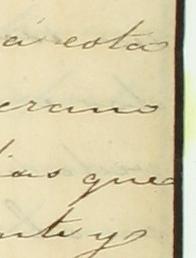 á esta
erano
ias que
nte y